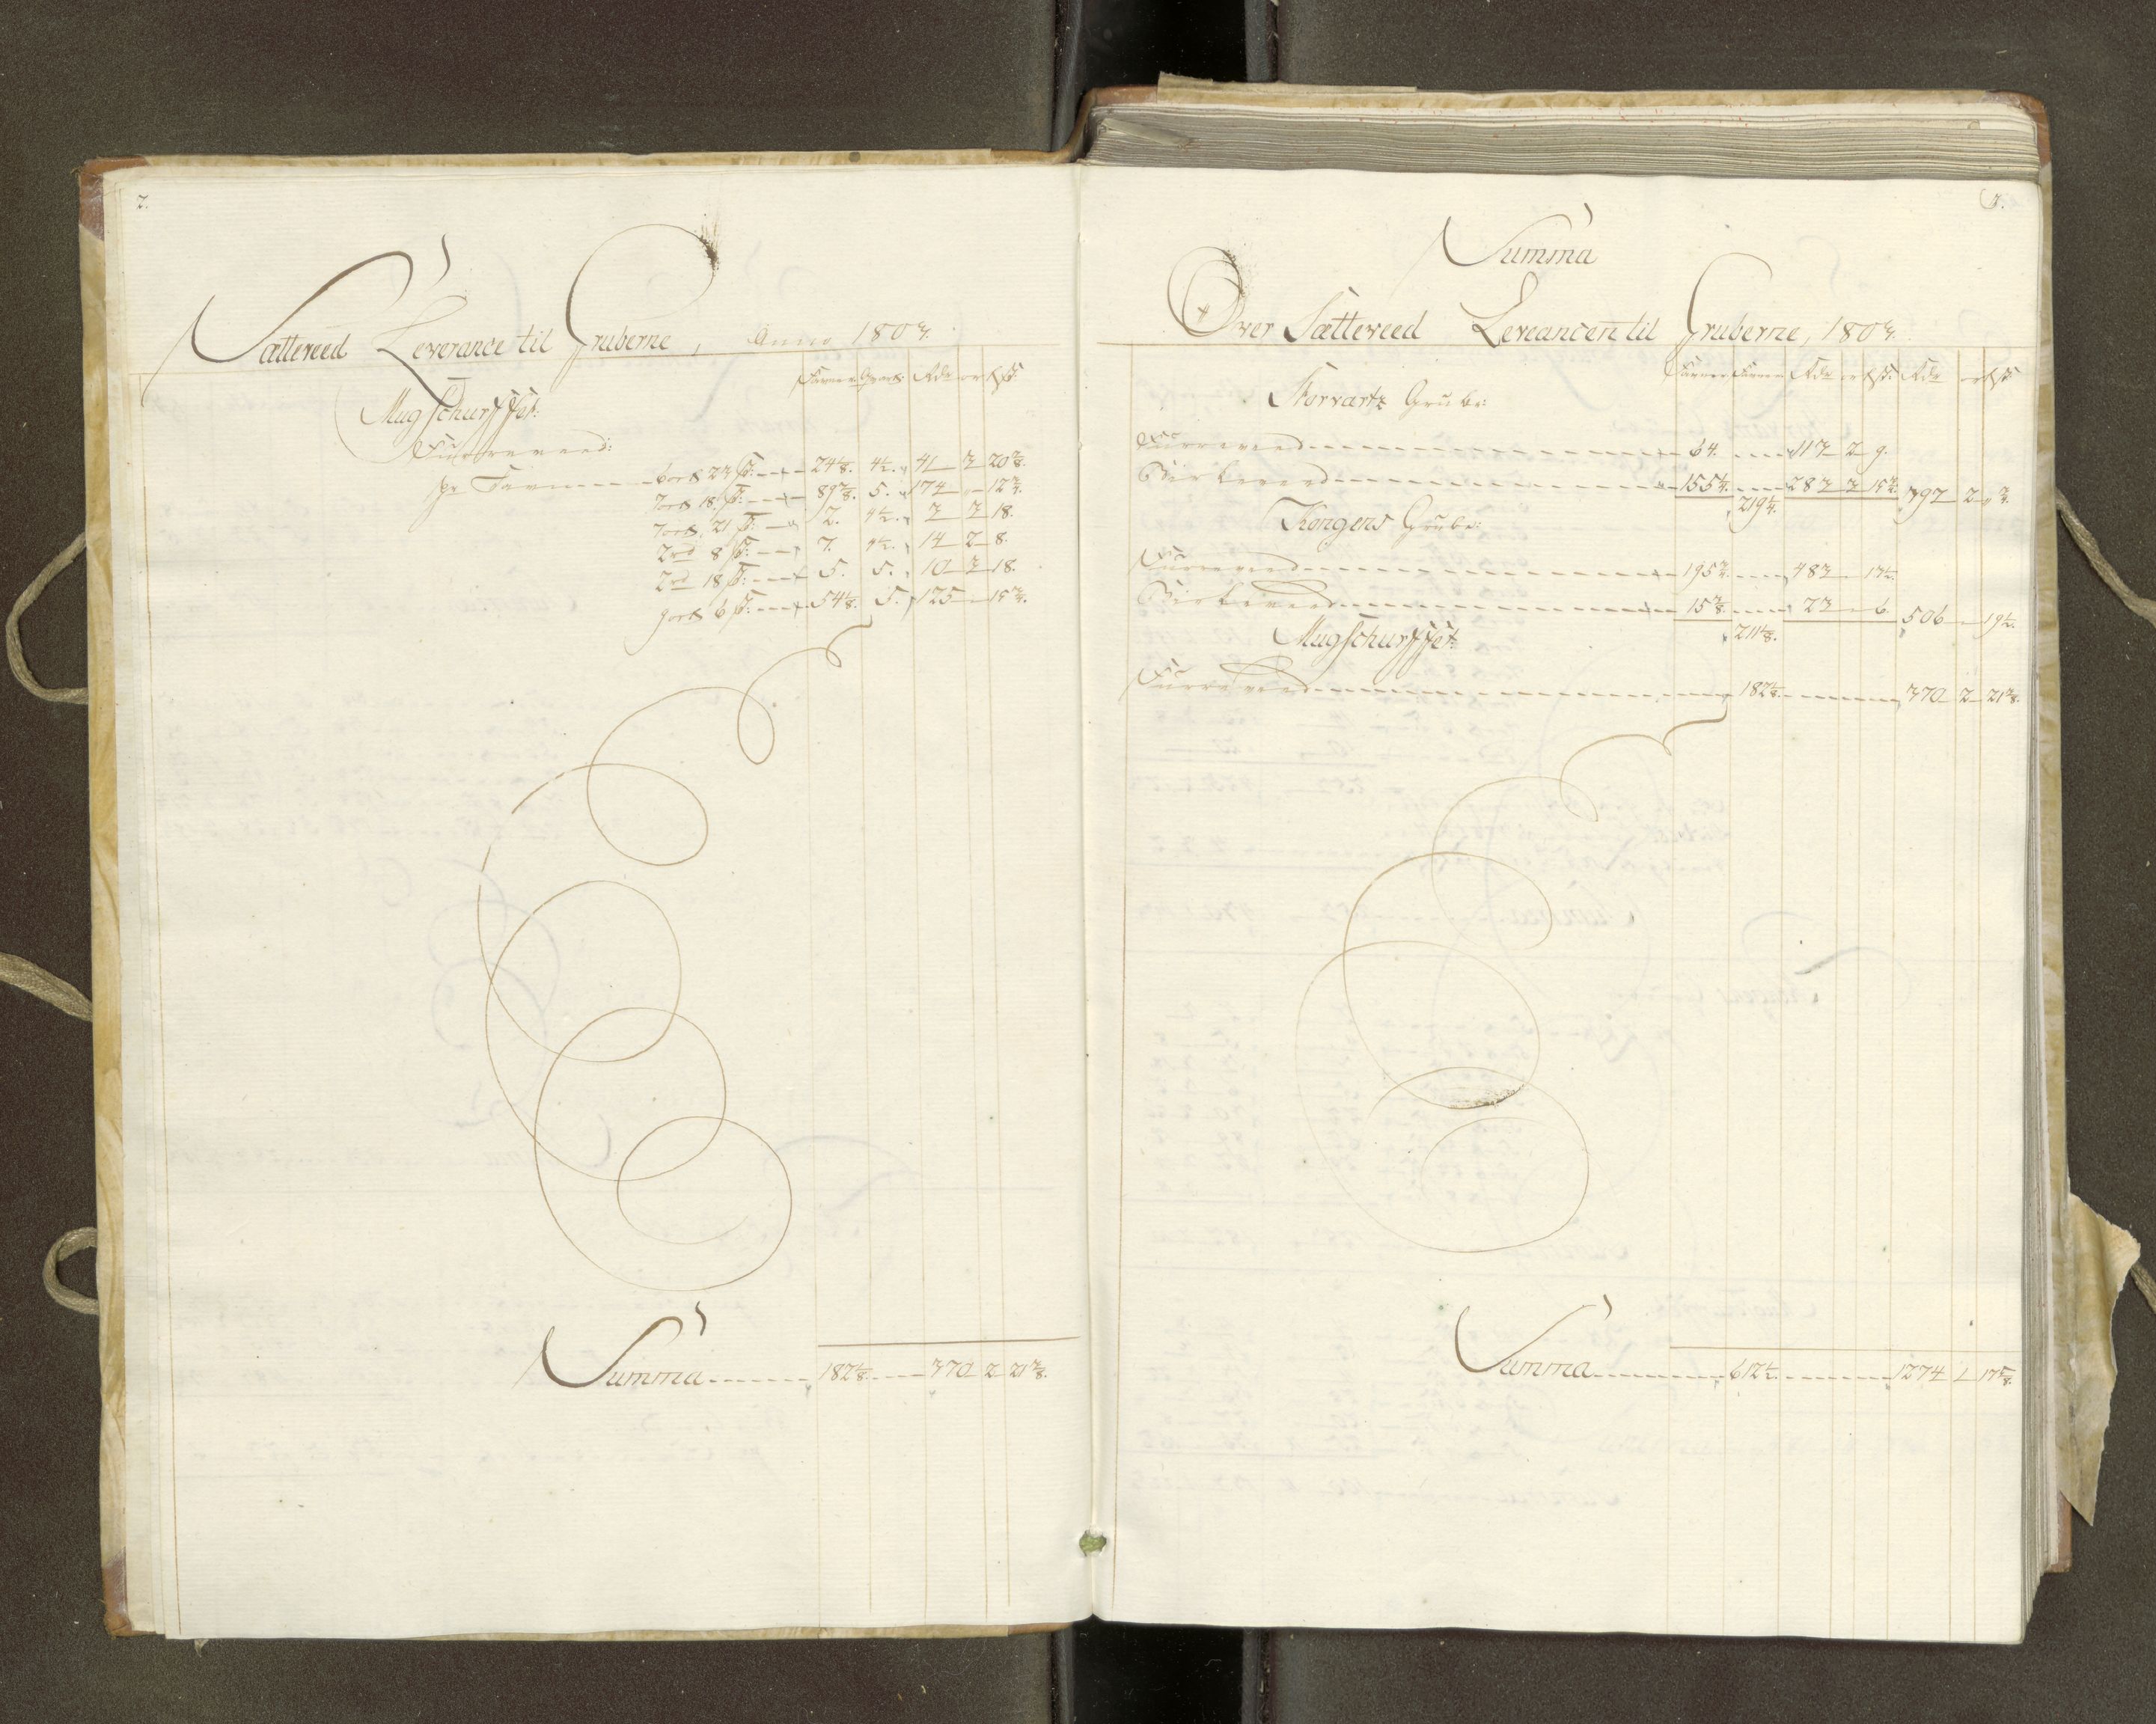 2.
Sætteveed Leverance til Gruberne, Anno 1803.
Favner Qvart: Rdr ort ß:
Mugschurffet:
Furreveed:
pr Favn 6 ort 23 ß: 24 1/8. 4 1/2. 41 3 20 3/8.
7 ort 18 ß: 89 7/8. 5. 174 " 12 3/4.
7 ort 21 ß: 2. 4 1/2. 3 3 18.
2 rd 8 ß: 7. 4 1/2. 14 2 8.
2 rd 18 ß: 5. 5. 10 3 18.
9 ort 6 ß: 54 1/8. 5. 125 " 15 3/4.
Summa 182 1/8. 370 2 21 3/8.
3.
Summa
Over Sætteveed Leverancen til Gruberne, 1803.
Favner Favner Rdr ort ß: Rdr ort ß:
Storvartz Grube:
Furreveed 64. 113 2 9.
Birkeveed 155 1/4. 283 3 15 3/4.
219 1/4. 397 2 " 3/4.
Kongens Grube:
Furreveed 195 3/4. 483 " 13 1/2.
Birkeveed 15 3/8. 23 " 6
211 1/8. 506 " 19 1/2.
Mugschurffet:
Furreveed 182 1/8. 370 2 21 3/8.
Summa 612 1/2. 1274 1 17 5/8.